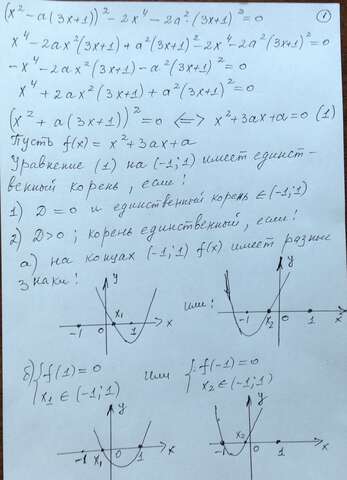 (x² - a(3x+1))² - 2x⁴ - 2a²·(3x+1)²=0
①
x⁴ - 2ax²(3x+1) + a²(3x+1)² - 2x⁴ - 2a²(3x+1)²=0
-x⁴ - 2ax²(3x+1) - a²(3x+1)²=0
x⁴ + 2ax²(3x+1) + a²(3x+1)²=0
(x² + a(3x+1))²=0 ⟺ x²+3ax+a=0 (1)
Пусть f(x) = x²+3ax+a
Уравнение (1) на (-1;1) имеет единст-
венный корень, если:
1) D=0 и единственный корень ∈(-1;1)
2) D>0; корень единственный, если:
а) на концах (-1;1) f(x) имеет разные
знаки:
y
-1 0 x₁ 1 x
или:
y
-1 x₂ 0 1 x
б) {f(1)=0 или {f(-1)=0
x₁ ∈(-1;1) x₂ ∈(-1;1)
y
-1 x₁ 0 1 x
y
-1 x₂ 0 1 x